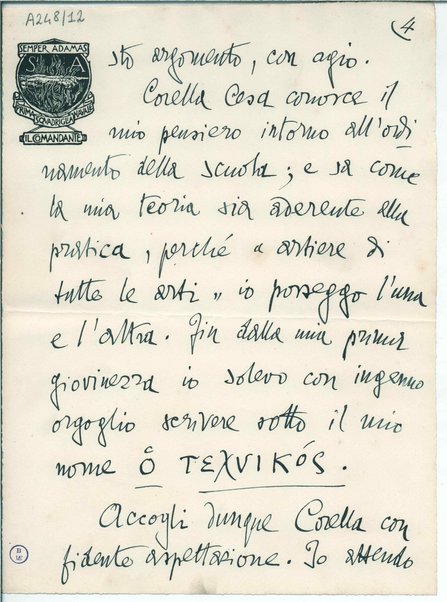 A248/12
4
SEMPER ADAMAS
S A
IL COMANDANTE
sto argomento, con agio.
Corella Cesa conosce il
mio pensiero intorno all'ordi
namento della scuola; e sa come
la mia teoria sia aderente alla
pratica, perché « artiere di
tutte le arti » io posseggo l'una
e l'altra. Fin dalla mia prima
giovinezza io solevo con ingenuo
orgoglio scrivere sotto il mio
nome ὁ τεχνικός.
Accogli dunque Corella con
fidente aspettazione. Io attendo